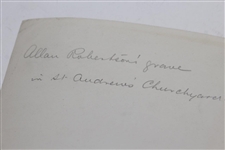 Allan Robertson's grave
in St Andrews Churchyard